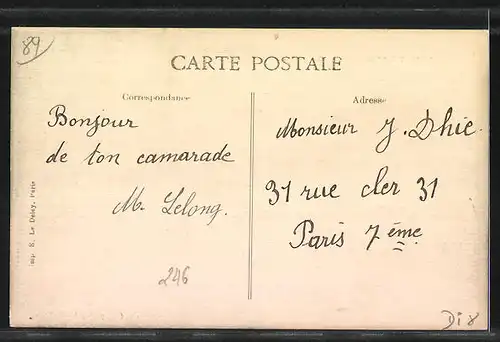 89
CARTE POSTALE
Correspondance
Adresse
Bonjour
de ton camarade
M. Lelong.
Monsieur J. Dhic
31 rue cler 31
Paris 7 ème
Imp. E. Le Deley, Paris
246